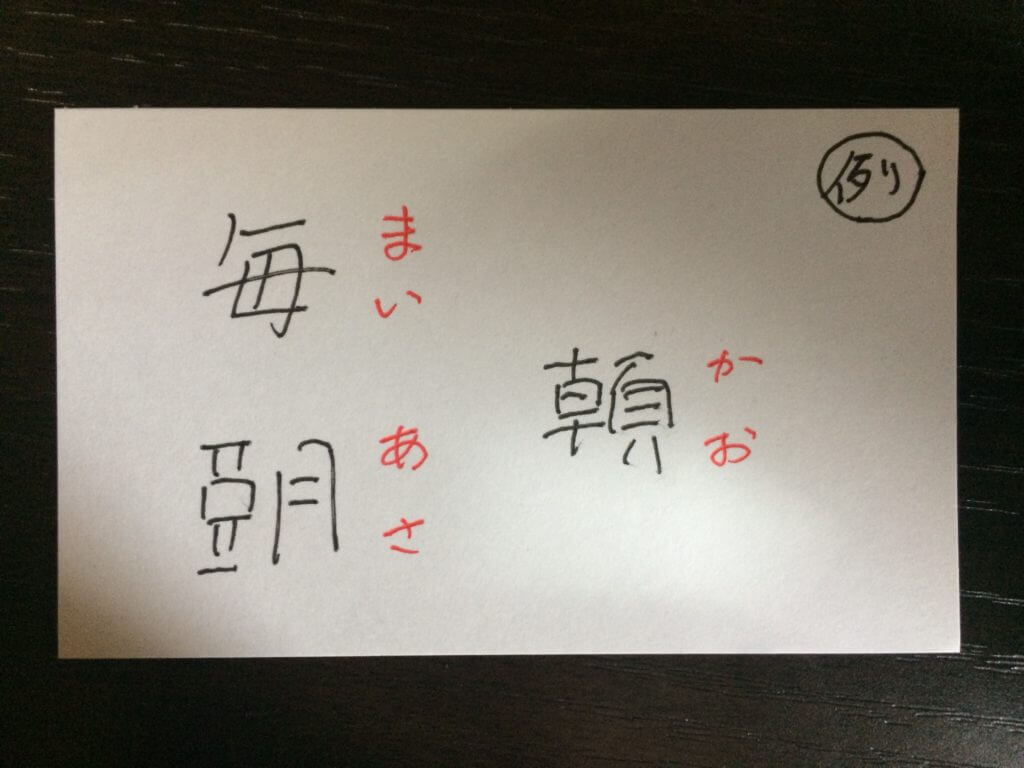 例
かお
毎
まい
あさ